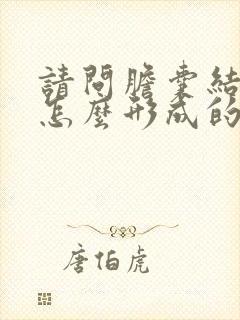 請問膽囊結
怎麼形成的
唐伯虎